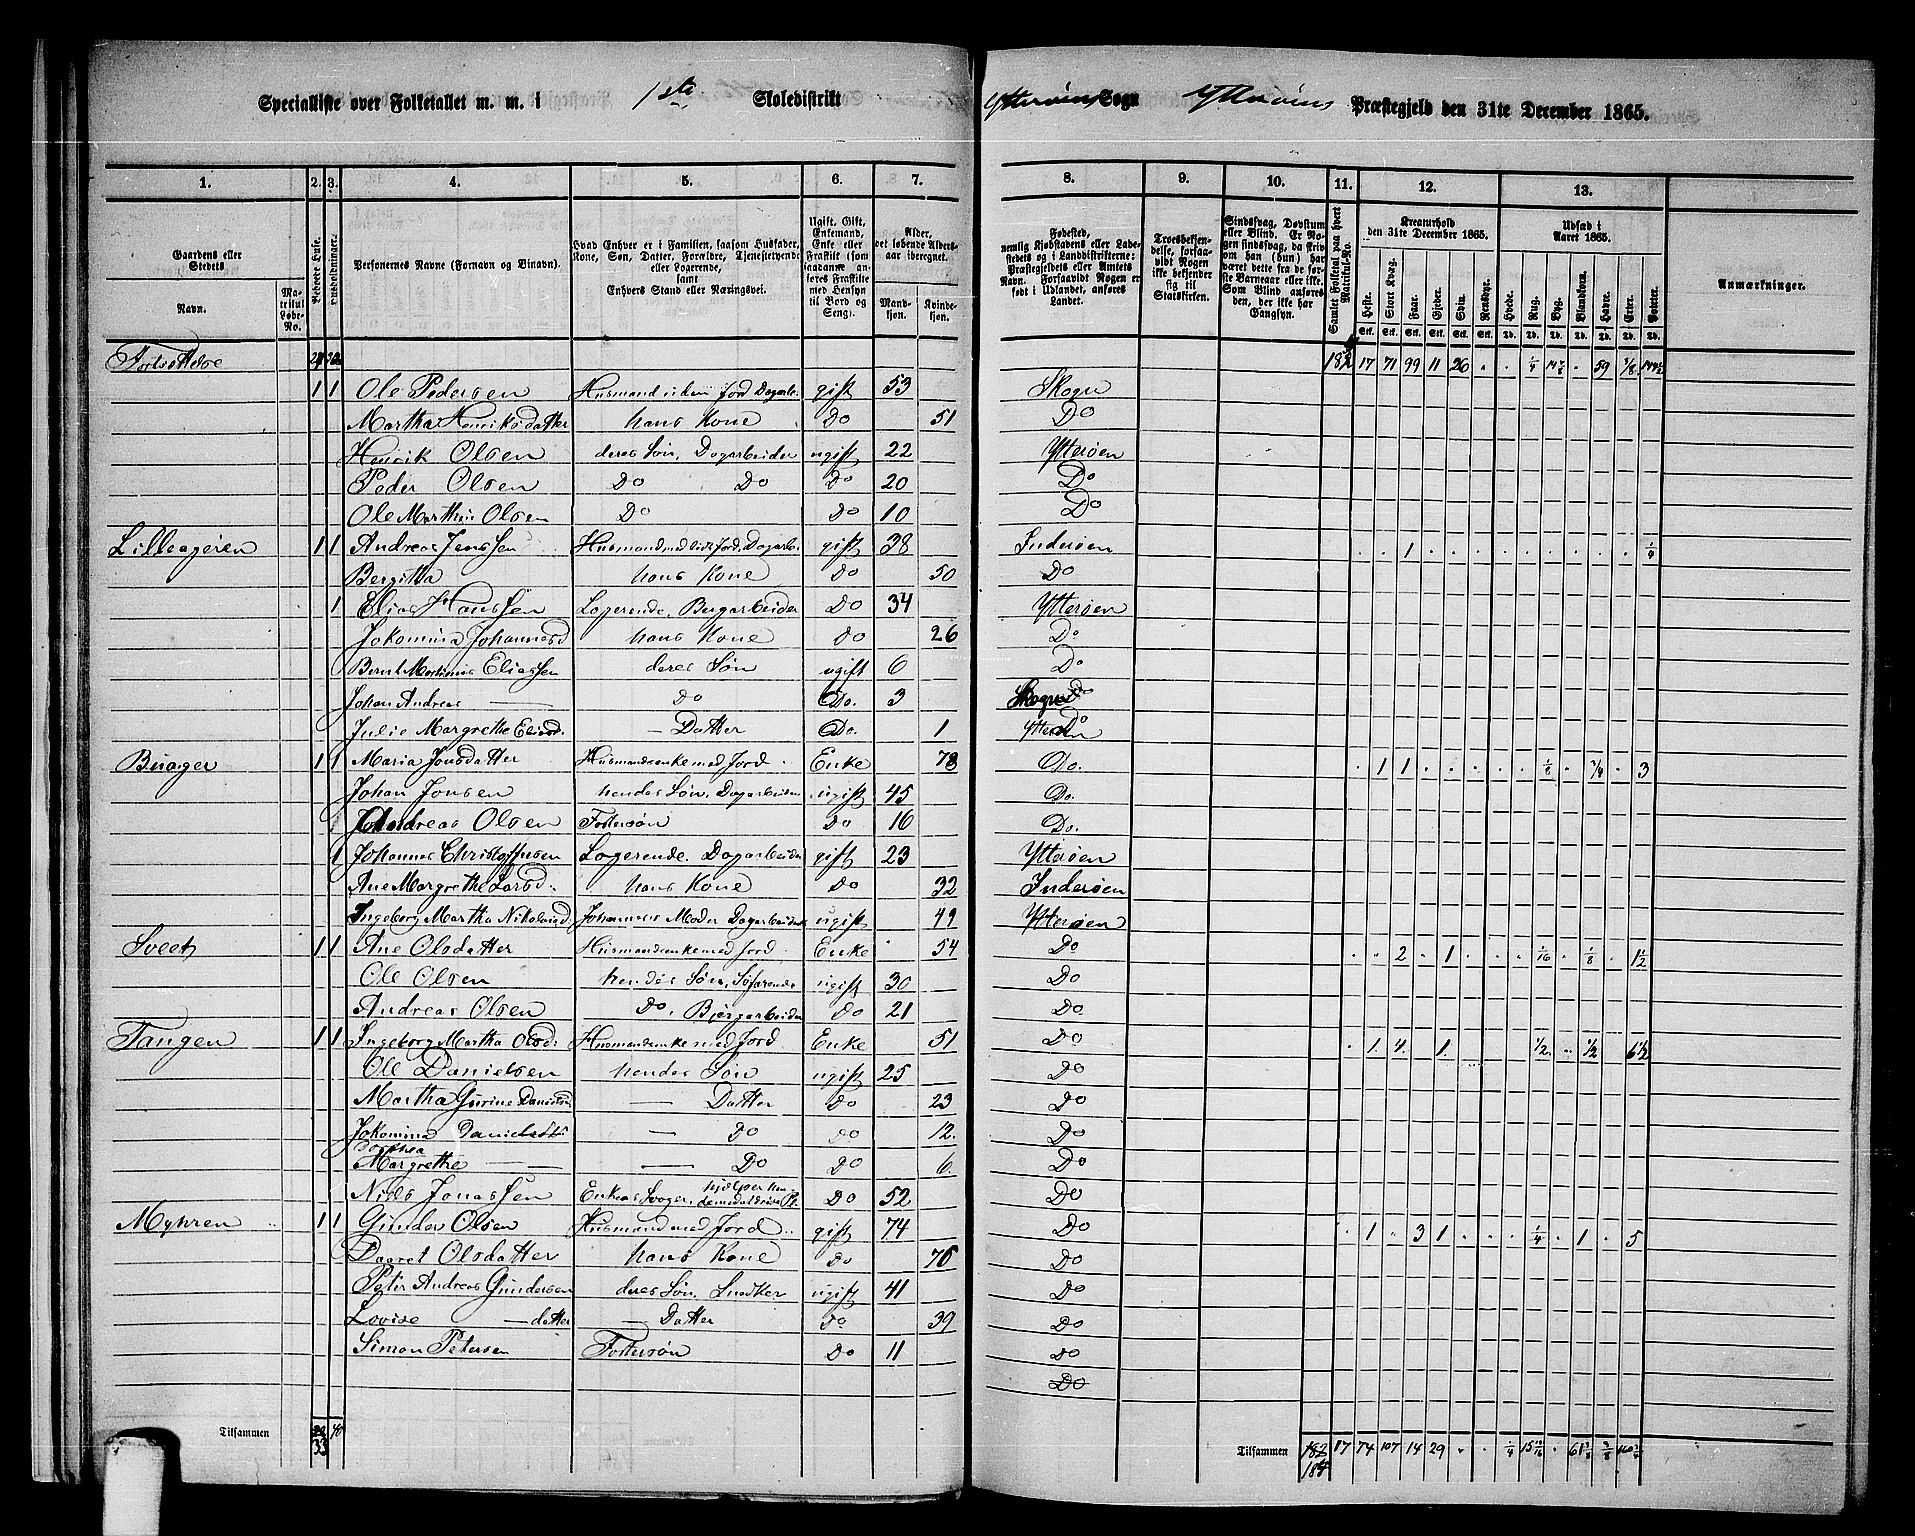 Specialliste over Folketallet m. m. i 1ste Skoledistrikt Ytterøens Sogn Ytterøens Præstegjeld den 31te December 1865.
1. 2. 3. 4. 5. 6. 7. 8. 9. 10. 11. 12. 13.
Gaardens eller Stedets Navn. Matrikul Løbe-No. Beboede Huse. Huusholdninger. Personernes Navne (Fornavn og Tilnavn). Hvad Enhver er i Familien, saasom Husfader, Kone, Søn, Datter, Forældre, Tjenestetyende eller Logerende, samt Enhvers Stand eller Næringsvei. Ugift, Gift, Enkemand, Enke eller Fraskilt (som saadanne anføres Fraskilte med Hensyn til Bord og Seng). Alder, det løbende Alders-aar iberegnet. Mandkjøn. Kvindekjøn.
Fødested, nemlig Kjøbstadens eller Ladestedets og i Landdistrikterne: Præstegjeldets eller Amtets Navn. Forsaavidt Nogen er født i Udlandet, anføres Landet. Troesbekjendelse, forsaavidt Nogen ikke bekjender sig til Statskirken. Sindssvag, Døvstum eller Blind. Er Nogen sindssvag, da hvorvidt dette har været fra de første Barneaar eller ikke. Samlet Folketal paa hvert Matrikul-No. Kreaturhold den 31te December 1865. Udsæd i Aaret 1865. Anmærkninger.
Heste. Stort Kvæg. Faar. Gjeder. Svin. Rensdyr. Hvede. Rug. Byg. Blandkorn. Havre. Erter. Poteter.
Fortsættelse 182 17 71 99 11 26 59
1 1 Ole Pedersen Husmand uden Jord Dagarb. gift 53 Skogn
Martha Henriksdatter hans Kone Do 51 Do
Henrik Olsen deres Søn, Dagarbeider ugift 22 Ytterøen
Peder Olsen Do Do Do 20 Do
Ole Martin Olsen Do Do 10 Do
Lilleageren 1 1 Andreas Jenssen Husmand med lidt Jord, Dagarb. gift 38 Inderøen 1 1/4
Bergitta hans Kone Do 50 Do
1 Elias Hanssen Logerende, Bergarbeider Do 34 Ytterøen
Jokomina Johannesd hans Kone Do 26 Do
Bernt Martinus Eliassen deres Søn ugift 6 Do
Johan Andreas — Do Do. 3 Do
Julie Margrethe Eliasd. — Datter Do. 1 Do
Buager 1 1 Maria Jonsdatter Husmandsenke med Jord Enke 78 Do. 1 1 1/8 3/4 3
Johan Jonsen hendes Søn, Dagarbeider ugift 45 Do.
Andreas Olsen Fostersøn Do 16 Do.
1 Johannes Christoffersen Logerende. Dagarbeider gift 23 Ytterøen
Ane Margrethe Larsd. hans Kone Do 32 Inderøen
Ingeborg Martha Nikolaisd. Johannes's Moder Dagarbeiderske ugift 49 Ytterøen
Sveet 1 1 Ane Olsdatter Husmandsenke med Jord Enke 54 Do 2 1 1/16 1/8 1 1/2
Ole Olsen hendes Søn, Søfarende ugift 30 Do
Andreas Olsen Do, Bjergarbeider Do 21 Do
Tangen 1 1 Ingeborg Martha Olsd. Husmandsenke med Jord Enke 51 Do 1 4 1 1/2 1/2 6 1/2
Ole Danielsen hendes Søn ugift 25 Do
Martha Gurine Danielsd — Datter Do 23 Do
Jokomina Danielsdtr — Do Do 12. Do
Dorthea
Margrethe — — Do Do 6 Do
Niels Jonassen Enkens Svoger, Do 52 Do
Myhren 1 1 Gunder Olsen Husmand med Jord gift 74 Do 1 3 1 1/4 1 5
Dagret Olsdatter hans Kone Do 75 Do
Peter Andreas Gundersen deres Søn, Snedker ugift 41 Do
Lovise — datter — Datter Do 39 Do
Simon Petersen Fostersøn Do 11 Do
Do
Tilsammen 33 40 Tilsammen 182 17 74 107 14 29 1/4
187